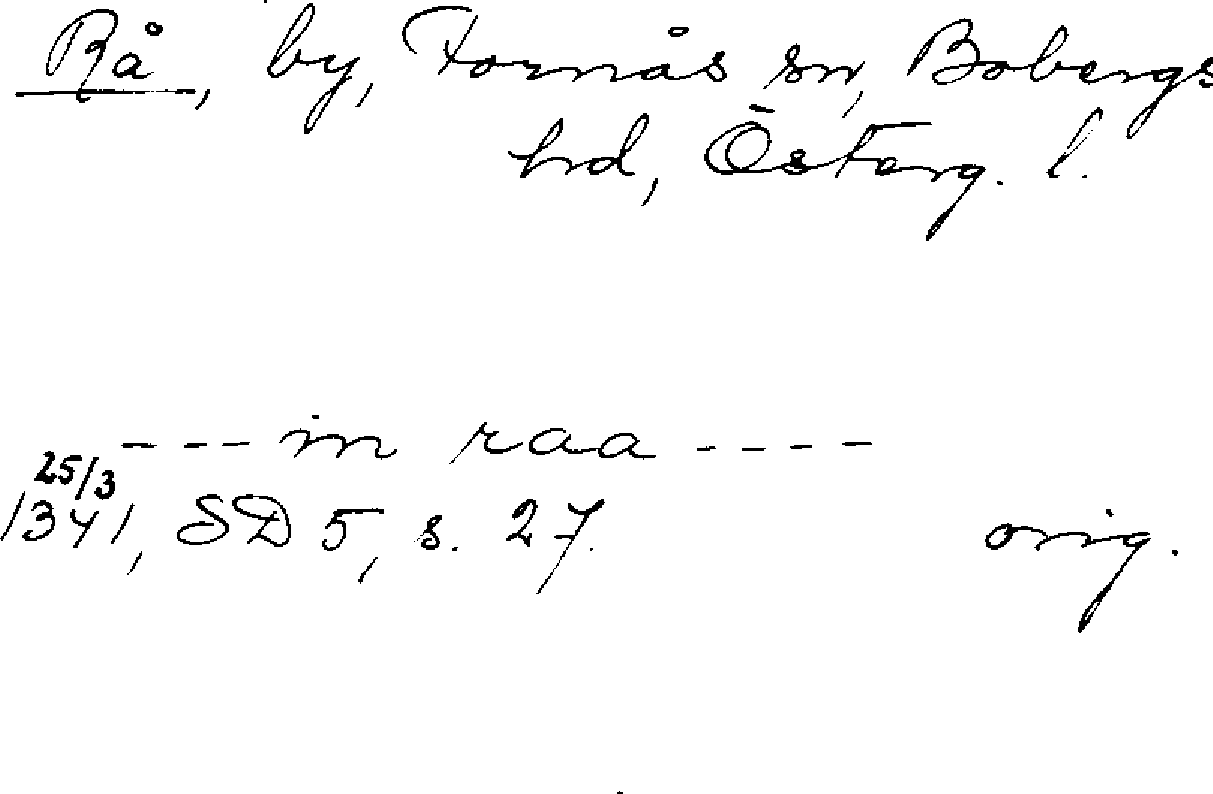 Rå, by, Fornås sn, Bobergs
hd, Österg. l.
--- in raa ----
25/3
1341, SD 5, s. 27. orig.